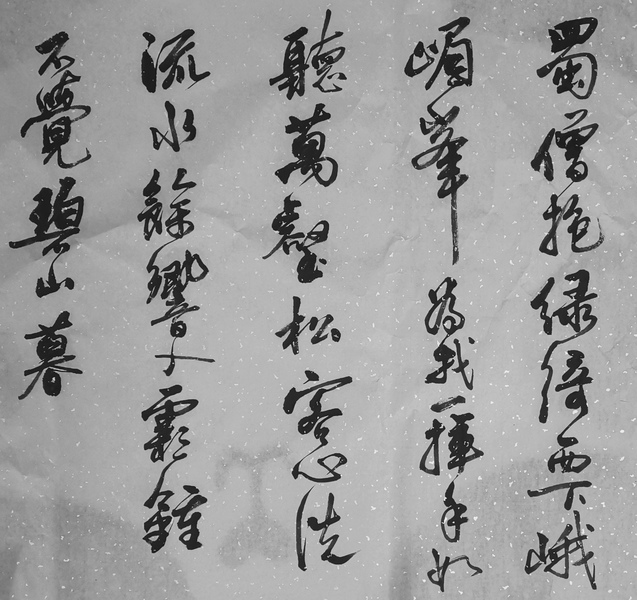 蜀僧抱緑綺西下峨
嵋峯為我一揮手如
聽萬壑松客心洗
流水餘響入霜鍾
不覺碧山暮